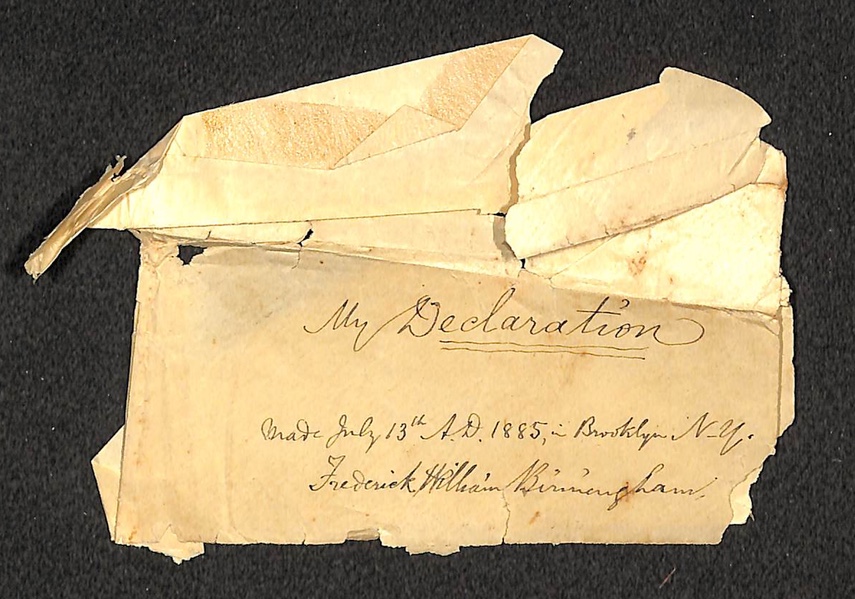 My Declaration
Made July 13th A.D. 1885, in Brooklyn N-Y.
Frederick William Birmengham.